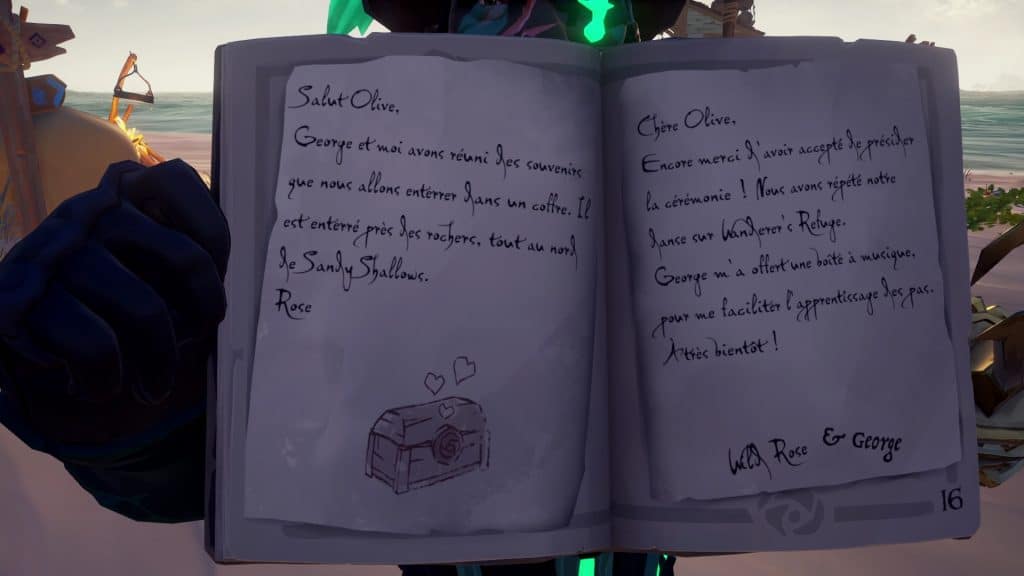 Salut Olive,
George et moi avons réuni des souvenirs
que nous allons entérrer dans un coffre. Il
est entérré près des rochers, tout au nord
de Sandy Shallows.
Rose
Chère Olive,
Encore merci d'avoir accepté de présider
la cérémonie ! Nous avons répété notre
danse sur Wanderer's Refuge.
George m'a offert une boîte à musique,
pour me faciliter l'apprentissage des pas.
À très bientôt !
Wild Rose & George
16